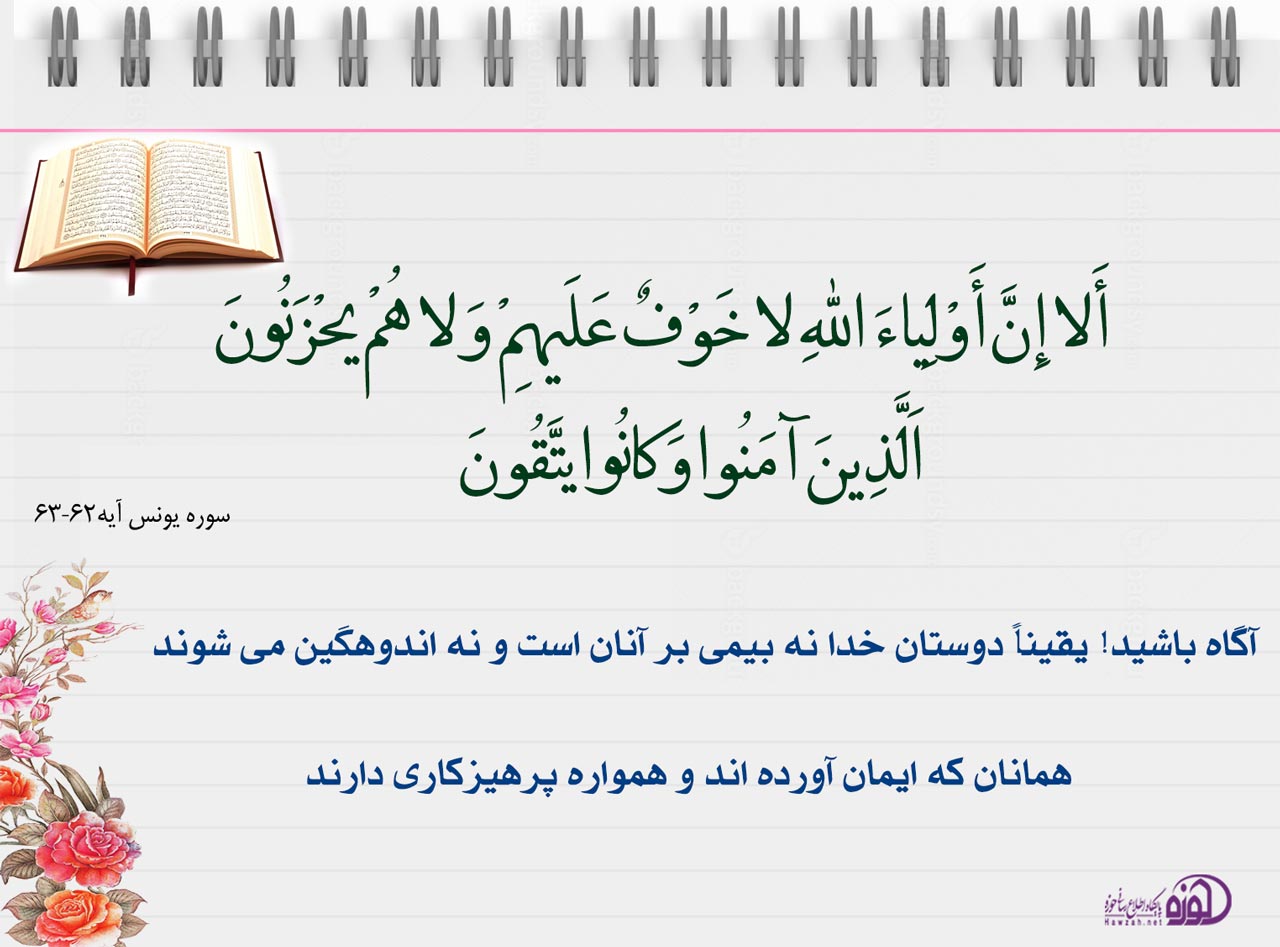 أَلا إِنَّ أَوْلِياءَ اللهِ لا خَوْفٌ عَلَيهِمْ وَ لا هُمْ يحْزَنُونَ
اَلَّذِينَ آمَنُوا وَ كانُوا يتَّقُونَ
سوره یونس آیه۶۲-۶۳
آگاه باشید! یقیناً دوستان خدا نه بیمی بر آنان است و نه اندوهگین می شوند
همانان که ایمان آورده اند و همواره پرهیزکاری دارند
حوزه
پایگاه اطلاع رسانی حوزه
Hawzah.net